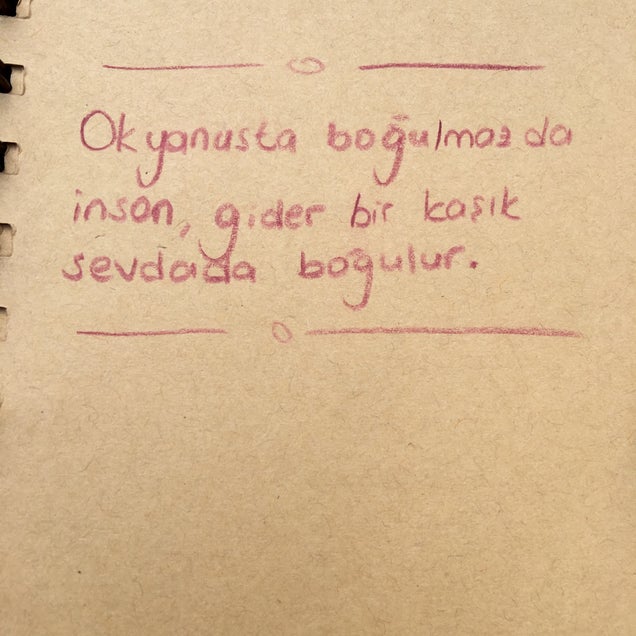 Okyanusta boğulmaz da
insan, gider bir kaşık
sevdada boğulur.